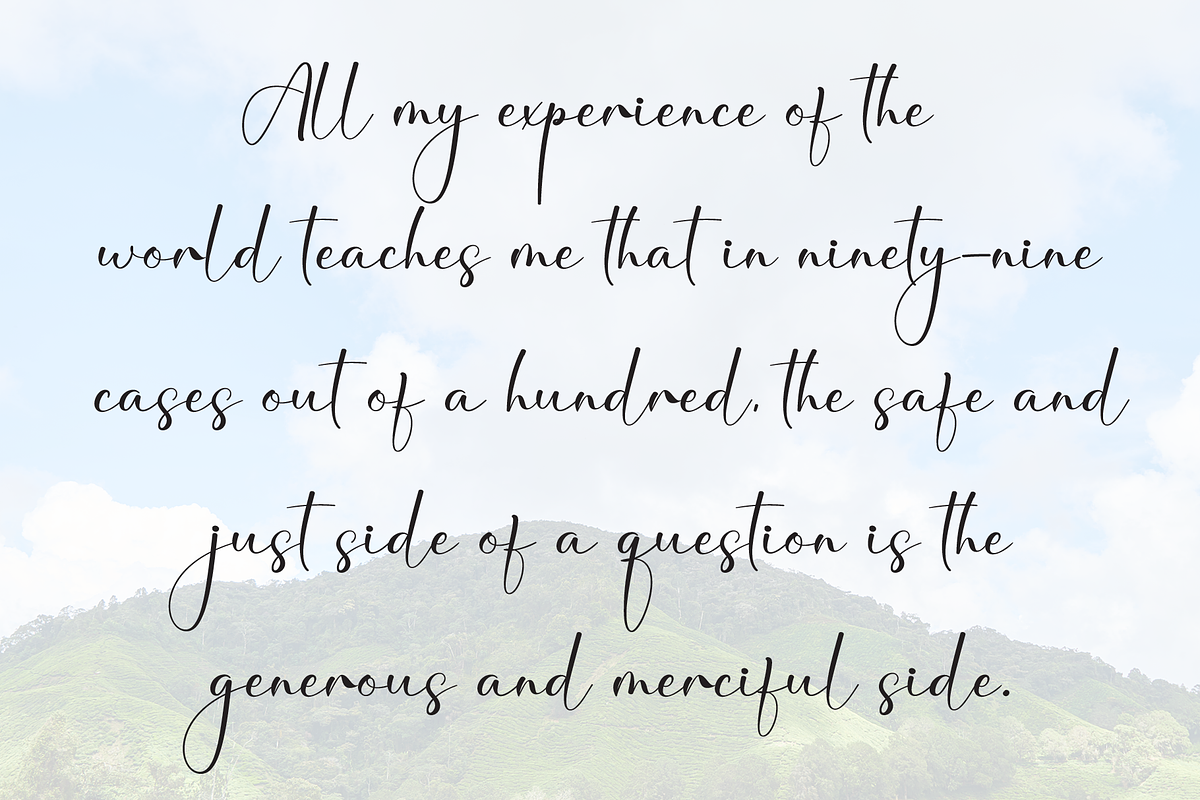 All my experience of the
world teaches me that in ninety-nine
cases out of a hundred, the safe and
just side of a question is the
generous and merciful side.